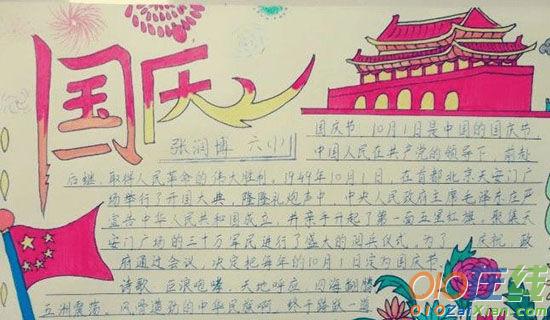 国庆
张润博 六(1)
国庆节,10月1日是中国的国庆节,
中国人民在共产党的领导下,前赴
后继,取得人民革命的伟大胜利,1949年10月1日,在首都北京天安门广
场举行了开国大典,隆隆礼炮声中,中央人民政府主席毛泽东庄严
宣告中华人民共和国成立,并亲手升起了第一面五星红旗,聚集天
安门广场的三十万军民进行了盛大的阅兵仪式,为了 庆祝,政
府通过会议,决定把每年的10月1日定为国庆节
诗歌 巨浪咆哮,天地呼应 四海翻腾
五洲震荡 风雪 的中华民族啊 终于踏
在线
ZaiXian.com